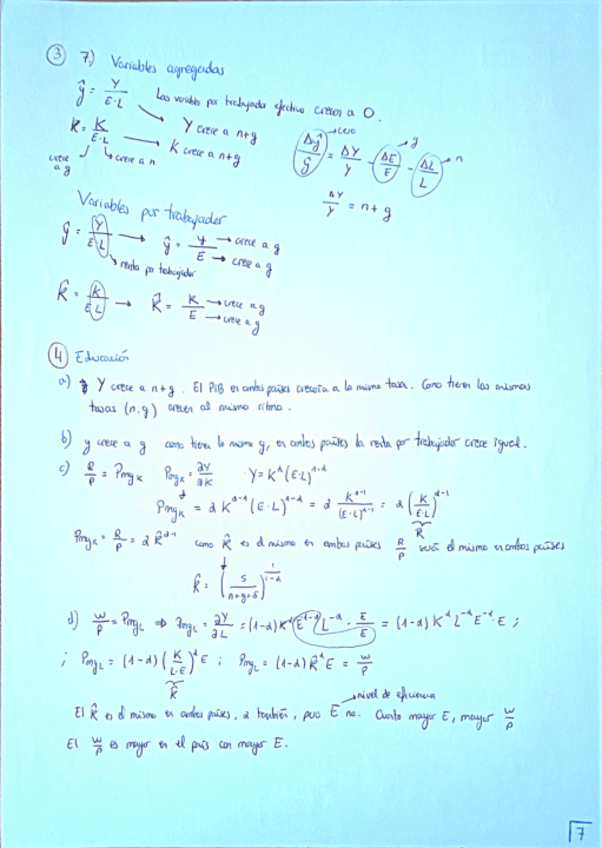 ③ 7) Variables agregadas
ŷ = Y / E·L Las variables por trabajador efectivo crecen a 0.
Y crece a n+g
k̂ = K / E·L K crece a n+g
crece a g crece a n
Δŷ/ŷ = ΔY/Y - ΔE/E - ΔL/L
cero g n
ΔY/Y = n+g
Variables por trabajador
ŷ = Y / E·L → ŷ = y / E → crece a g → crece a g
renta por trabajador
k̂ = K / E·L → k̂ = K / E → crece a g → crece a g
④ Educación
a) Y crece a n+g. El PIB en ambos países crecería a la misma tasa. Como tienen las mismas
tasas (n,g) crecen al mismo ritmo.
b) y crece a g como tienen la misma g, en ambos países la renta por trabajador crece igual.
c) R/P = Pmg_K Pmg_K = ∂Y/∂K Y = K^α (E·L)^1-α
Pmg_K = α K^α-1 (E·L)^1-α = α K^α-1 / (E·L)^α-1 = α (K / E·L)^α-1
k̂
Pmg_K = R/P = α k̂^α-1 como k̂ es el mismo en ambos países R/P será el mismo en ambos países
k̂ = (s / n+g+δ)^1/1-α
d) w/P = Pmg_L ⇒ Pmg_L = ∂Y/∂L = (1-α) K^α E^1-α L^-α · E/E = (1-α) K^α L^-α E^-α · E ;
; Pmg_L = (1-α) (K / L·E)^α E ; Pmg_L = (1-α) k̂^α E = w/P
k̂
nivel de eficiencia
El k̂ es el mismo en ambos países, α también, pero E no. Cuanto mayor E, mayor w/P
El w/P es mayor en el país con mayor E.
7